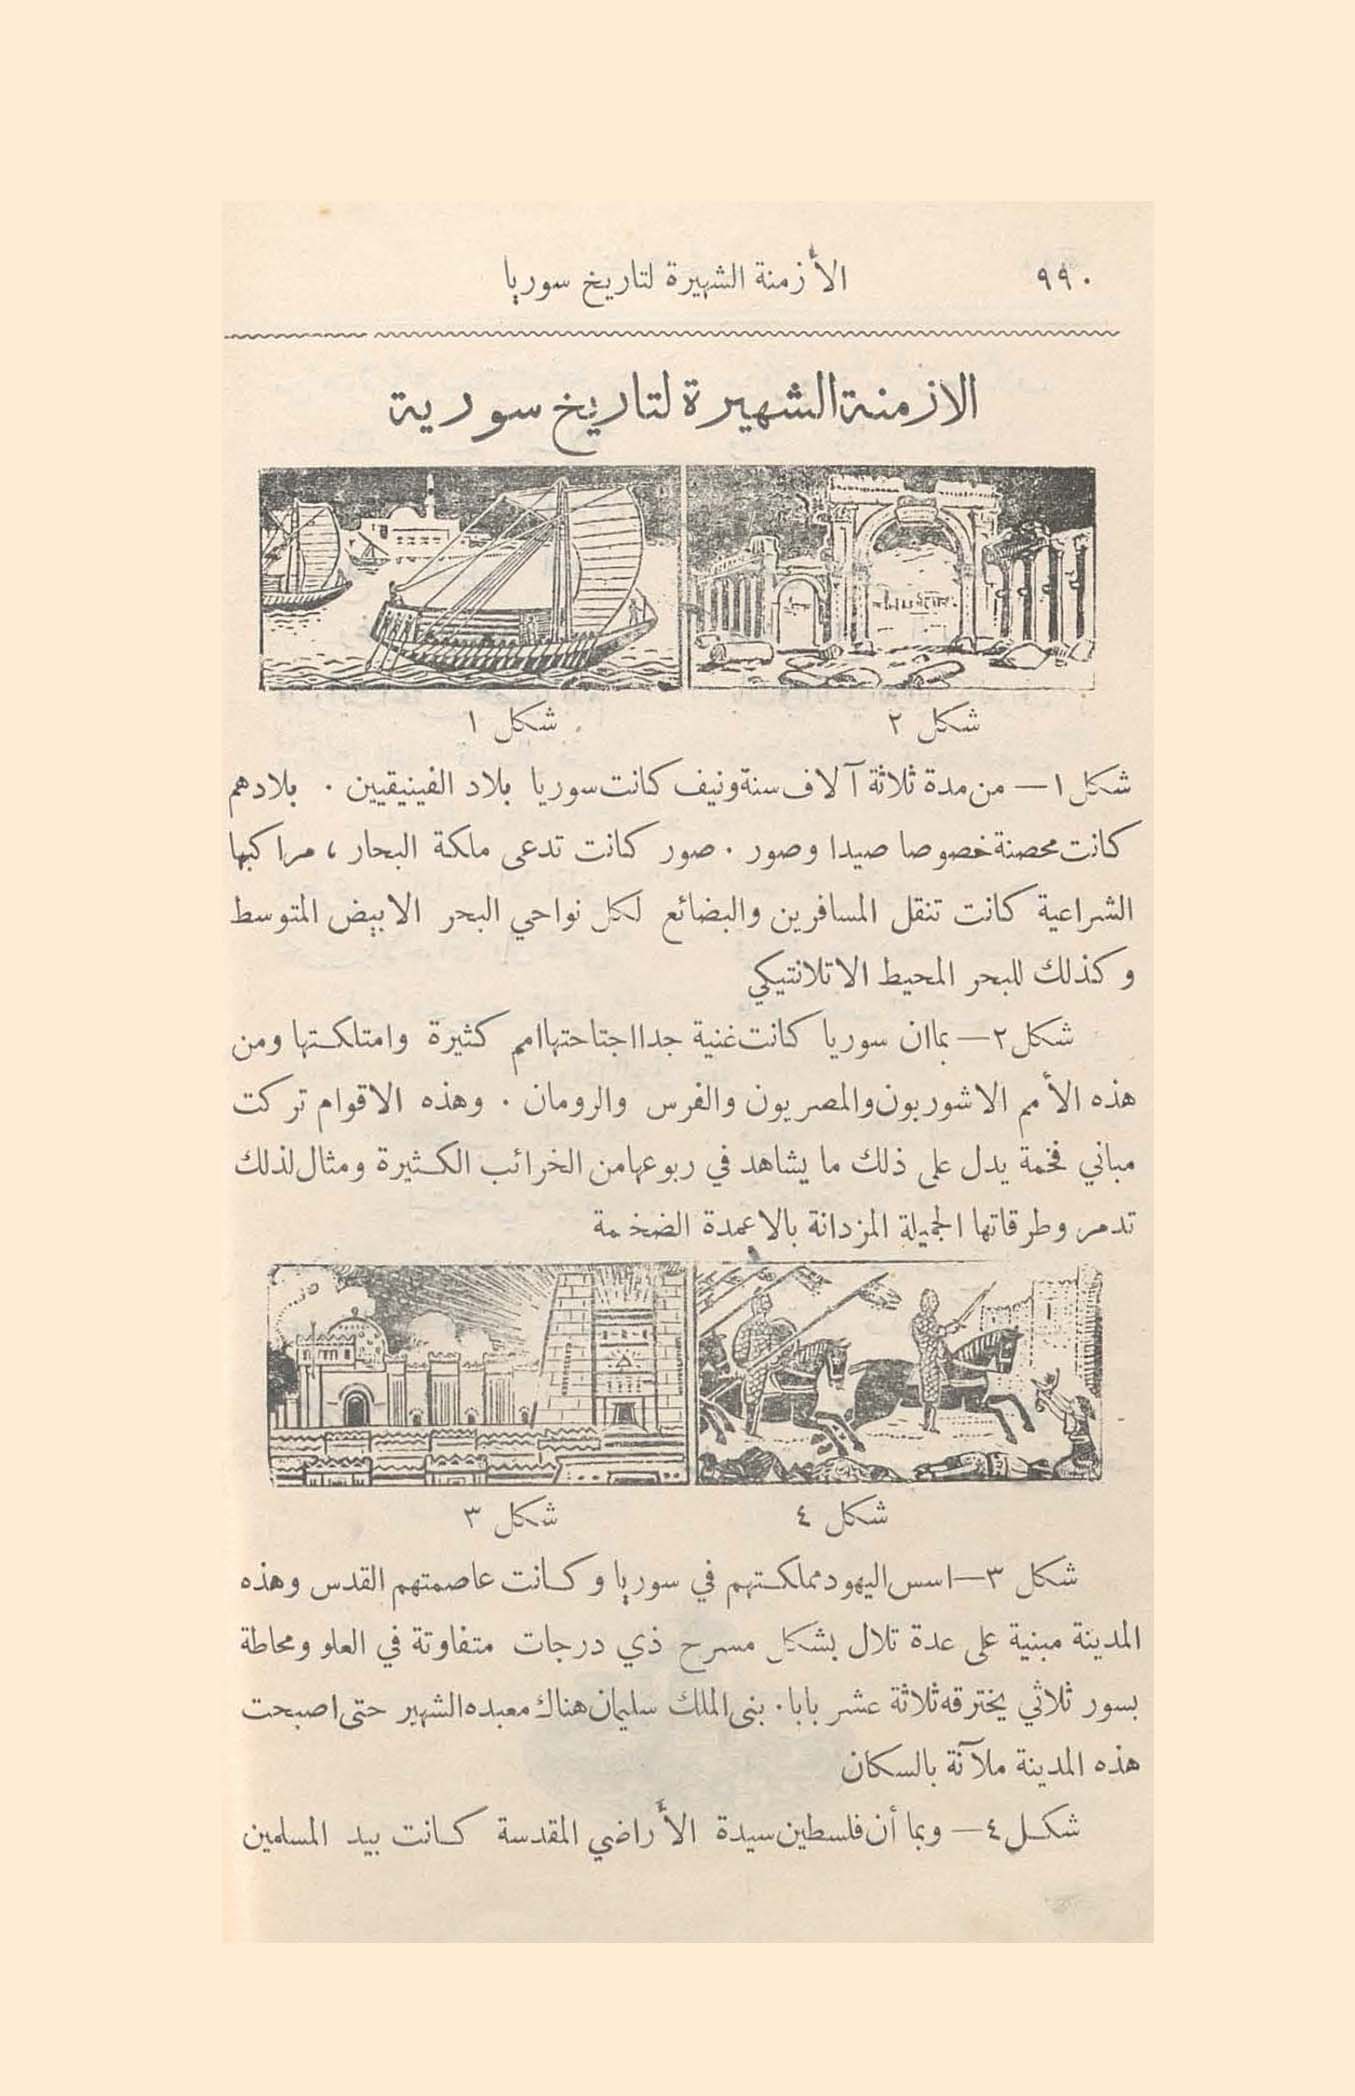 ٩٩٠ الأزمنة الشهيرة لتاريخ سوريا
الازمنة الشهيرة لتاريخ سورية
شكل ٢
شكل ١
شكل ١— من مدة ثلاثة آلاف سنة ونيف كانت سوريا بلاد الفينيقيين . بلادهم
كانت محصنة خصوصا صيدا وصور . صور كانت تدعى ملكة البحار ، مراكبها
الشراعية كانت تنقل المسافرين والبضائع لكل نواحي البحر الابيض المتوسط
وكذلك للبحر المحيط الاتلانتيكي
شكل ٢— بما ان سوريا كانت غنية جدا اجتاحتها امم كثيرة وامتلكتها ومن
هذه الأمم الاشوريون والمصريون والفرس والرومان . وهذه الاقوام تركت
مباني فخمة يدل على ذلك ما يشاهد في ربوعها من الخرائب الكثيرة ومثال لذلك
تدمر وطرقاتها الجميلة المزدانة بالاعمدة الضخمة
شكل ٤
شكل ٣
شكل ٣— اسس اليهود مملكتهم في سوريا وكانت عاصمتهم القدس وهذه
المدينة مبنية على عدة تلال بشكل مسرح ذي درجات متفاوتة في العلو ومحاطة
بسور ثلاثي يخترقه ثلاثة عشر بابا . بنى الملك سليمان هناك معبده الشهير حتى اصبحت
هذه المدينة ملآنة بالسكان
شكل ٤— وبما أن فلسطين سيدة الأراضي المقدسة كانت بيد المسلمين